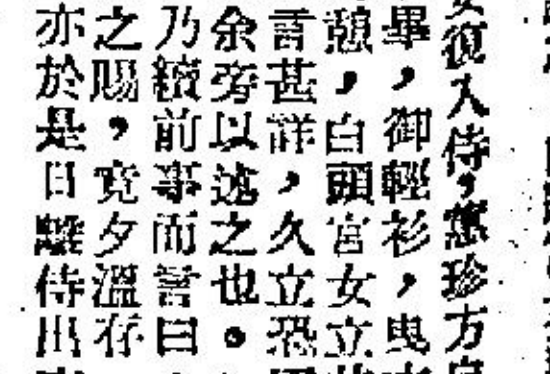 復入侍，珍方
畢，御輕衫，曳
憩，白頭宮女立
言甚詳，久立恐
余旁以述之也。
乃續前事而言曰
之賜，竟夕溫存
亦於是日侍出